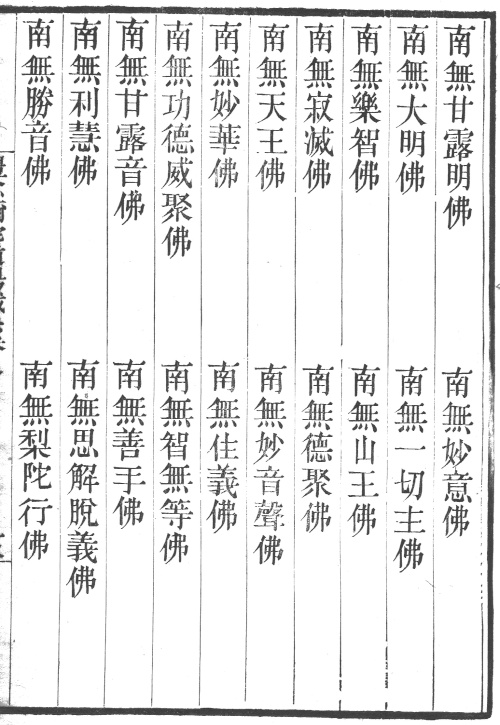 南無甘露明佛　南無妙意佛
南無大明佛　南無一切主佛
南無樂智佛　南無山王佛
南無寂滅佛　南無德聚佛
南無天王佛　南無妙音聲佛
南無妙華佛　南無住義佛
南無功德威聚佛　南無智無等佛
南無甘露音佛　南無善手佛
南無利慧佛　南無思解脫義佛
南無勝音佛　南無梨陀行佛